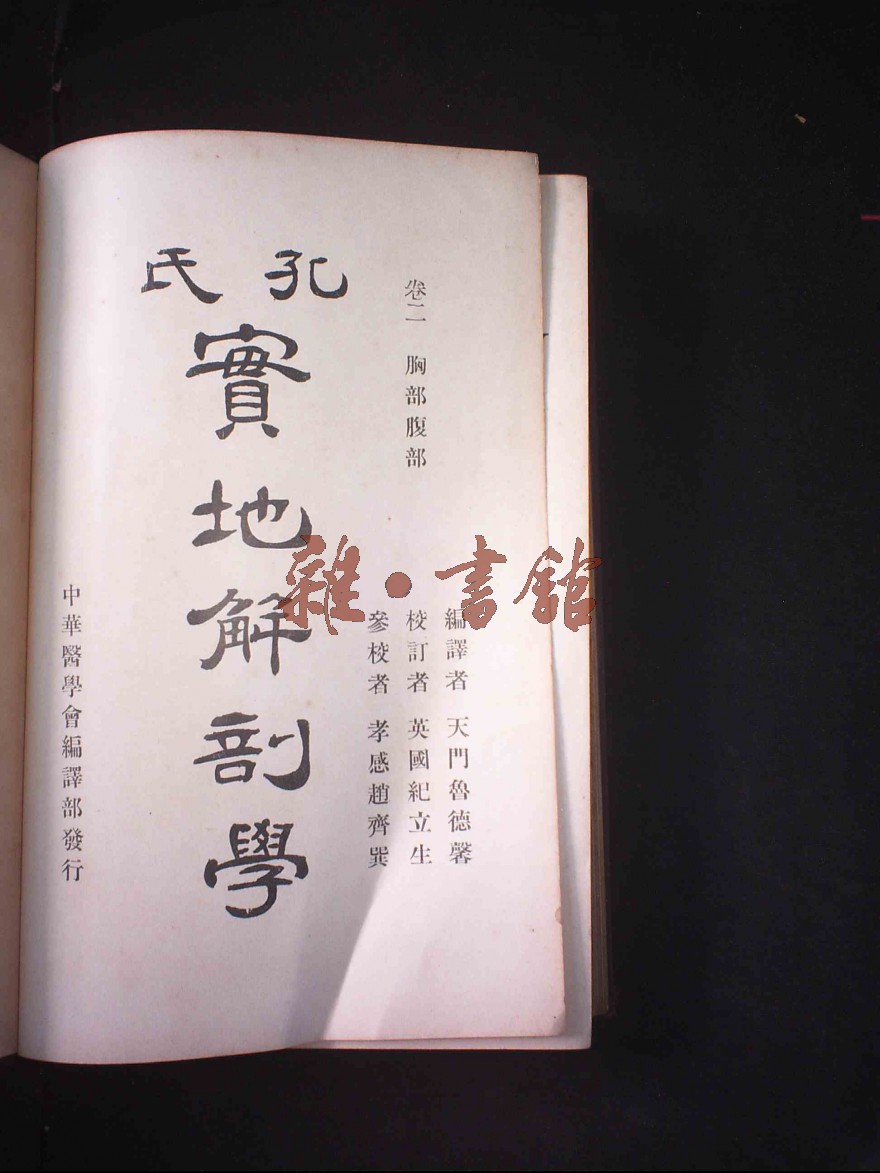 卷二 胸部腹部
孔氏
實地解剖學
編譯者 天門魯德馨
校訂者 英國紀立生
參校者 孝感趙齊巽
中華醫學會編譯部發行
雜·書館